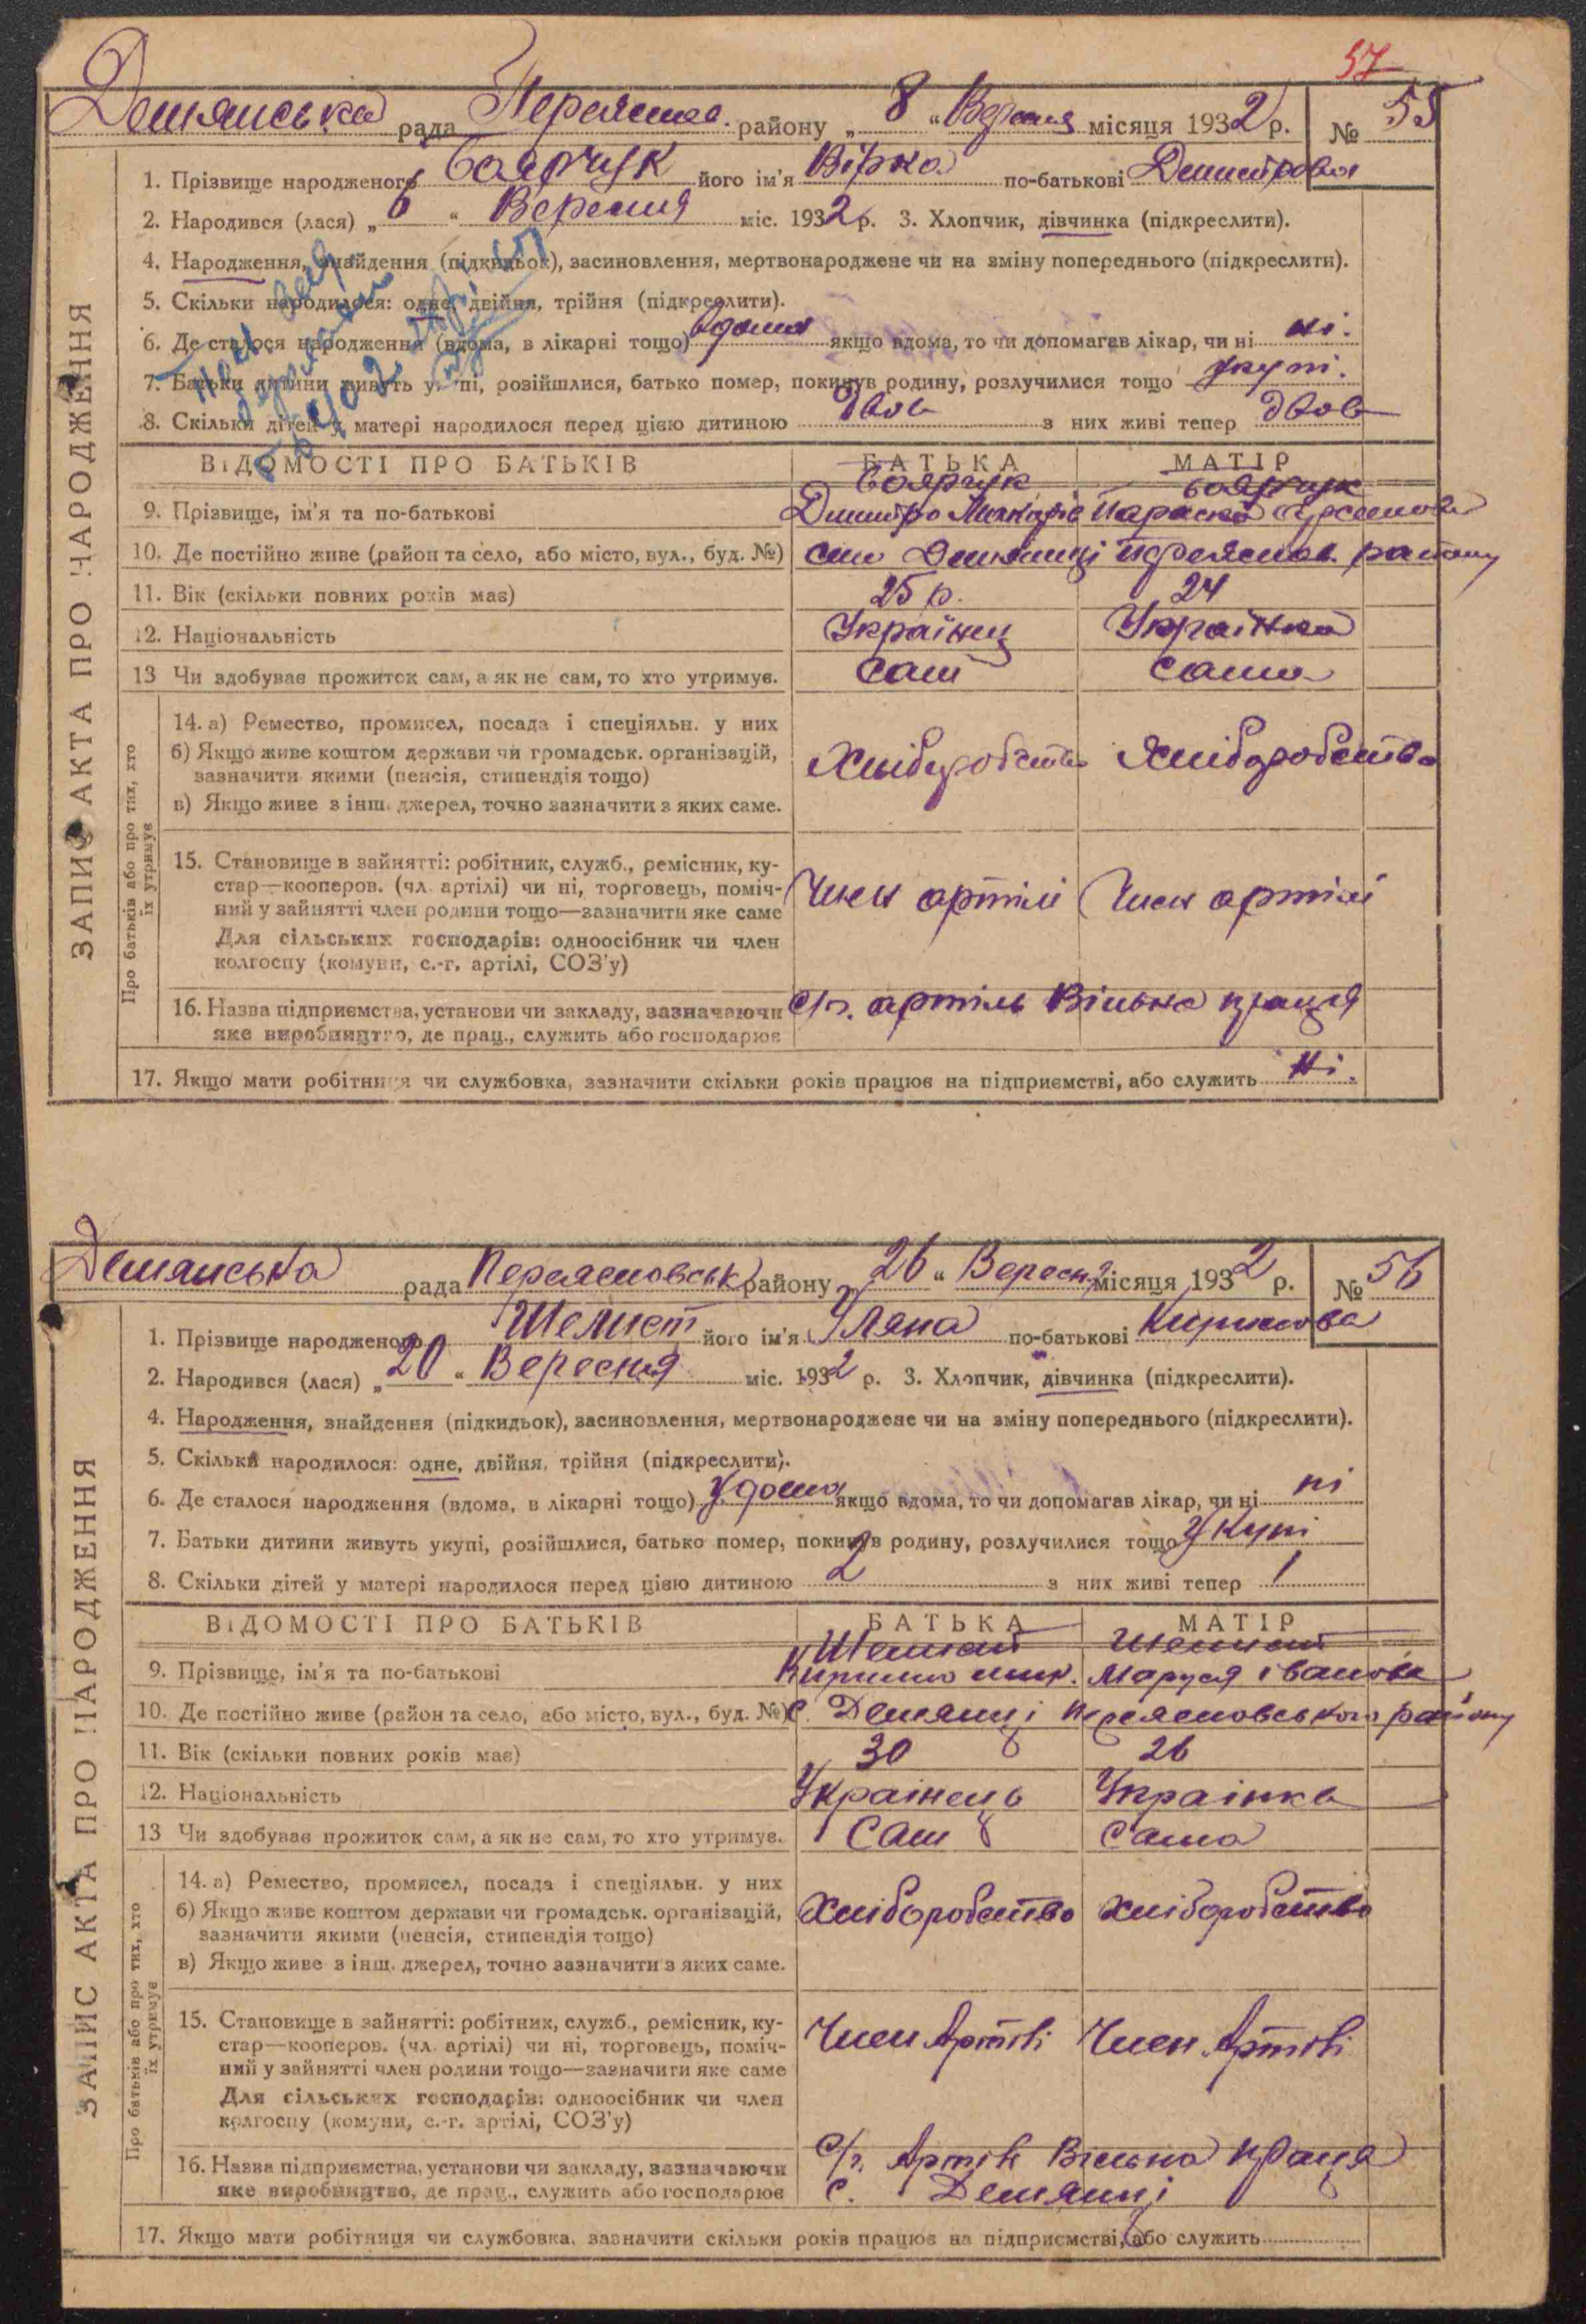 57
Демянська рада Переяслав. району „ 8 “ Вересня місяця 1932 р. № 55
ЗАПИС АКТА ПРО НАРОДЖЕННЯ
1. Прізвище народженого Боярчук його ім'я Вірка по-батькові Дмитрова
2. Народився (лася) „ 6 “ Вересня міс. 1932 р. 3. Хлопчик, дівчинка (підкреслити).
4. Народження, знайдення (підкидьок), засиновлення, мертвонароджене чи на зміну попереднього (підкреслити).
5. Скільки народилося: одне, двійня, трійня (підкреслити).
6. Де сталося народження (вдома, в лікарні тощо) вдома якщо вдома, то чи допомагав лікар, чи ні ні.
7. Батьки дитини живуть укупі, розійшлися, батько помер, покинув родину, розлучилися тощо укупі.
8. Скільки дітей у матері народилося перед цією дитиною двоє з них живі тепер двоє
ВІДОМОСТІ ПРО БАТЬКІВ БАТЬКА МАТІР
Боярчук Боярчук
9. Прізвище, ім'я та по-батькові Дмитро Параска
10. Де постійно живе (район та село, або місто, вул., буд. №) село Демянці Переяслав. району
11. Вік (скільки повних років має) 25 р. 24
12. Національність Українец Українка
13 Чи здобуває прожиток сам, а як не сам, то хто утримує. сам сама
Про батьків або про тих, хто їх утримує
14. а) Ремество, промисел, посада і спеціяльн. у них
б) Якщо живе коштом держави чи громадськ. організацій, Хліборобство Хліборобство
зазначити якими (пенсія, стипендія тощо)
в) Якщо живе з інш. джерел, точно зазначити з яких саме.
15. Становище в зайнятті: робітник, служб., ремісник, ку-
стар—кооперов. (чл. артілі) чи ні, торговець, поміч- Член артілі Член артілі
ний у зайнятті член родини тощо—зазначити яке саме
Для сільських господарів: одноосібник чи член
колгоспу (комуни, с.-г. артілі, СОЗ'у)
16. Назва підприємства, установи чи закладу, зазначаючи с/г. артіль Вільна праця
яке виробництво, де прац., служить або господарює
17. Якщо мати робітниця чи службовка, зазначити скільки років працює на підприємстві, або служить ні.
Демянська рада Переясловськ району 26 “ Вересня місяця 1932 р. № 56
ЗАПИС АКТА ПРО НАРОДЖЕННЯ
1. Прізвище народженого Шелист його ім'я Уляна по-батькові Кирилова
2. Народився (лася) „ 20 “ Вересня міс. 1932 р. 3. Хлопчик, дівчинка (підкреслити).
4. Народження, знайдення (підкидьок), засиновлення, мертвонароджене чи на зміну попереднього (підкреслити).
5. Скільки народилося: одне, двійня, трійня (підкреслити).
6. Де сталося народження (вдома, в лікарні тощо) удома якщо вдома, то чи допомагав лікар, чи ні ні
7. Батьки дитини живуть укупі, розійшлися, батько помер, покинув родину, розлучилися тощо Укупі
8. Скільки дітей у матері народилося перед цією дитиною 2 з них живі тепер 1
ВІДОМОСТІ ПРО БАТЬКІВ БАТЬКА МАТІР
Шелист Шелист
9. Прізвище, ім'я та по-батькові Кирило Маруся Іванова
10. Де постійно живе (район та село, або місто, вул., буд. №) с. Демянці Переясловського району
11. Вік (скільки повних років має) 30 26
12. Національність Українець Українка
13 Чи здобуває прожиток сам, а як не сам, то хто утримує. Сам Сама
Про батьків або про тих, хто їх утримує
14. а) Ремество, промисел, посада і спеціяльн. у них
б) Якщо живе коштом держави чи громадськ. організацій, Хліборобство хліборобство
зазначити якими (пенсія, стипендія тощо)
в) Якщо живе з інш. джерел, точно зазначити з яких саме.
15. Становище в зайнятті: робітник, служб., ремісник, ку-
стар—кооперов. (чл. артілі) чи ні, торговець, поміч- Член Артілі Член Артілі
ний у зайнятті член родини тощо—зазначити яке саме
Для сільських господарів: одноосібник чи член
колгоспу (комуни, с.-г. артілі, СОЗ'у)
16. Назва підприємства, установи чи закладу, зазначаючи с/г. Артіль Вільна праця
яке виробництво, де прац., служить або господарює с. Демянці
17. Якщо мати робітниця чи службовка, зазначити скільки років працює на підприємстві, або служить